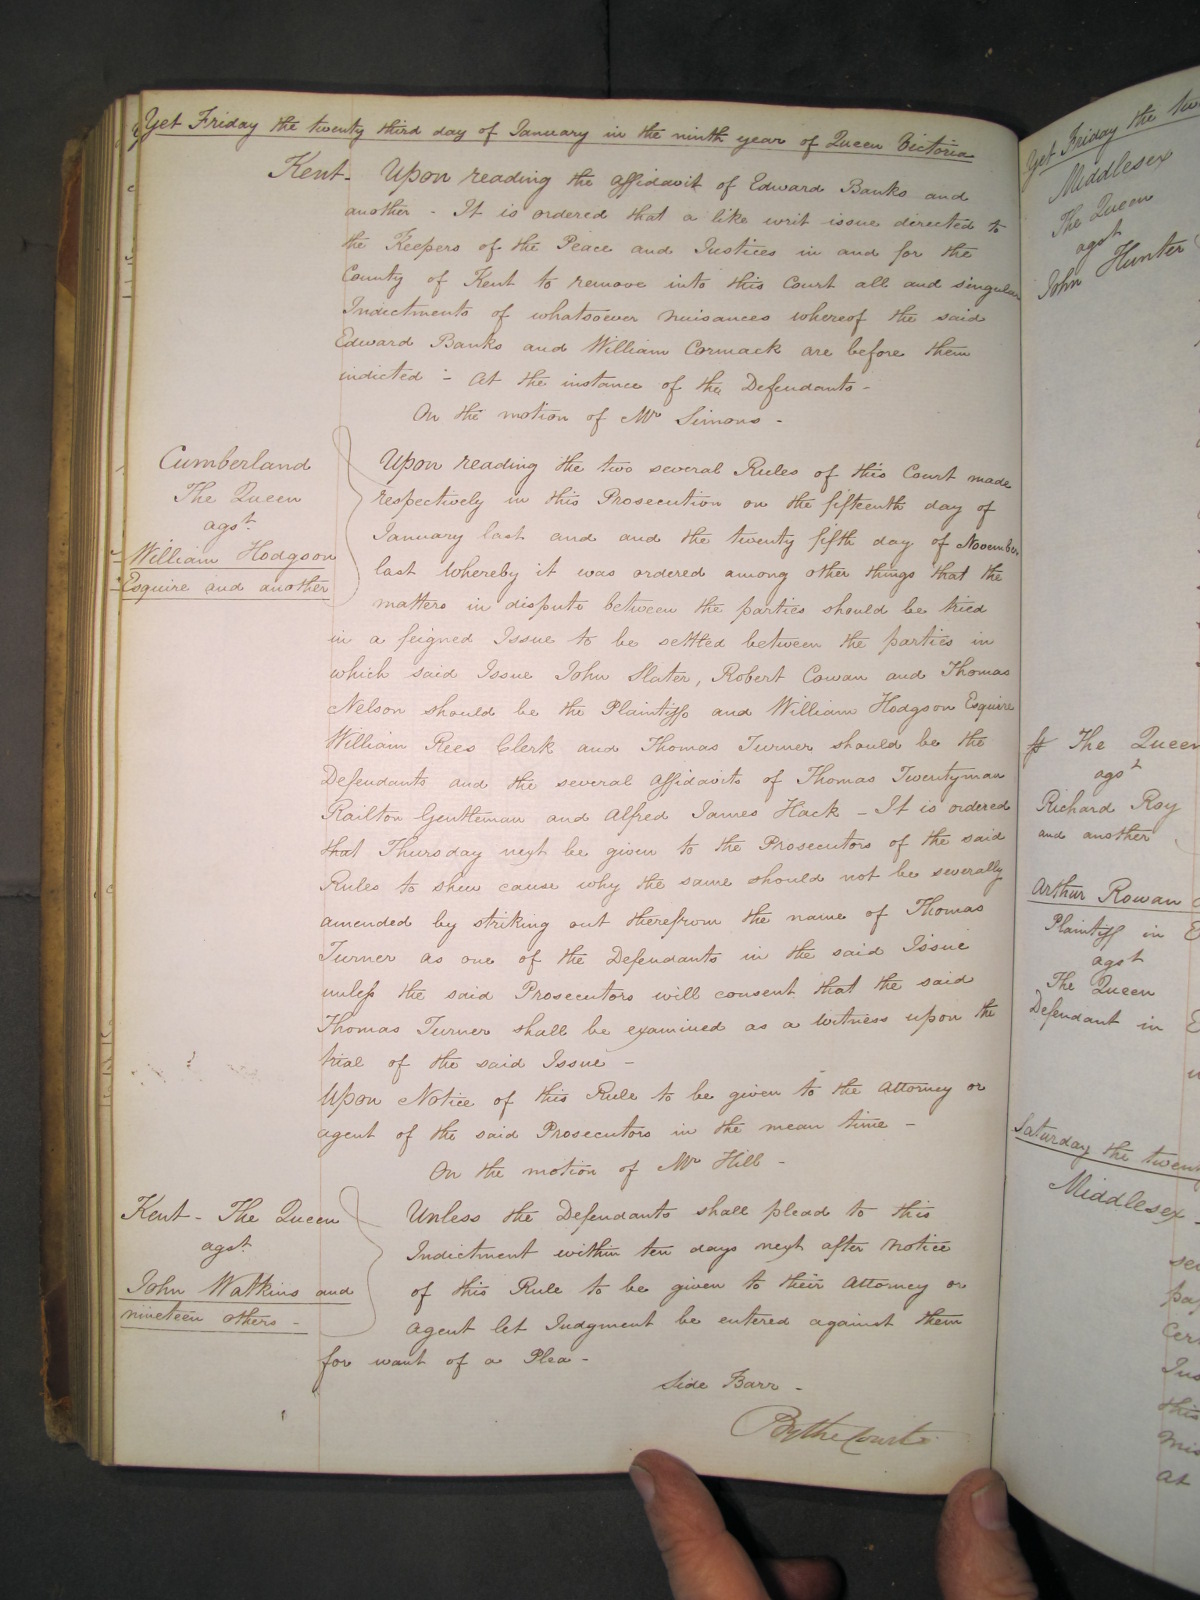 Yet Friday the twenty third day of January in the ninth year of Queen Victoria
Kent - Upon reading the affidavit of Edward Banks and
another - It is ordered that a like writ issue directed to
the Keepers of the Peace and Justices in and for the
County of Kent to remove into this Court all and singular
Indictments of whatsoever nuisances whereof the said
Edward Banks and William Cormack are before them
indicted :- At the instance of the Defendants -
On the motion of Mr Simons -
Cumberland
The Queen
agst
William Hodgson
Esquire and another
Upon reading the two several Rules of this Court made
respectively in this Prosecution on the fifteenth day of
January last and and the twenty fifth day of November
last whereby it was ordered among other things that the
matters in dispute between the parties should be tried
in a feigned Issue to be settled between the parties in
which said Issue John Slater, Robert Cowan and Thomas
Nelson should be the Plaintiffs and William Hodgson Esquire
William Rees Clerk and Thomas Turner should be the
Defendants and the several affidavits of Thomas Twentyman
Railton Gentleman and Alfred James Hack - It is ordered
that Thursday next be given to the Prosecutors of the said
Rules to shew cause why the same should not be severally
amended by striking out therefrom the name of Thomas
Turner as one of the Defendants in the said Issue
unless the said Prosecutors will consent that the said
Thomas Turner shall be examined as a witness upon the
trial of the said Issue -
Upon Notice of this Rule to be given to the Attorney or
agent of the said Prosecutors in the mean time -
On the motion of Mr Hill -
Kent - The Queen
agst
John Watkins and
nineteen others -
Unless the Defendants shall plead to this
Indictment within ten days next after notice
of this Rule to be given to their Attorney or
Agent let Judgment be entered against them
for want of a Plea -
Side Barr -
By the Court
Yet Friday the
Middlesex
The Queen
agst
John Hunter
The Queen
agst
Richard Roy
and another
Arthur Rowan
Plaintiff in
agst
The Queen
Defendant in
Saturday the
Middlesex -
at